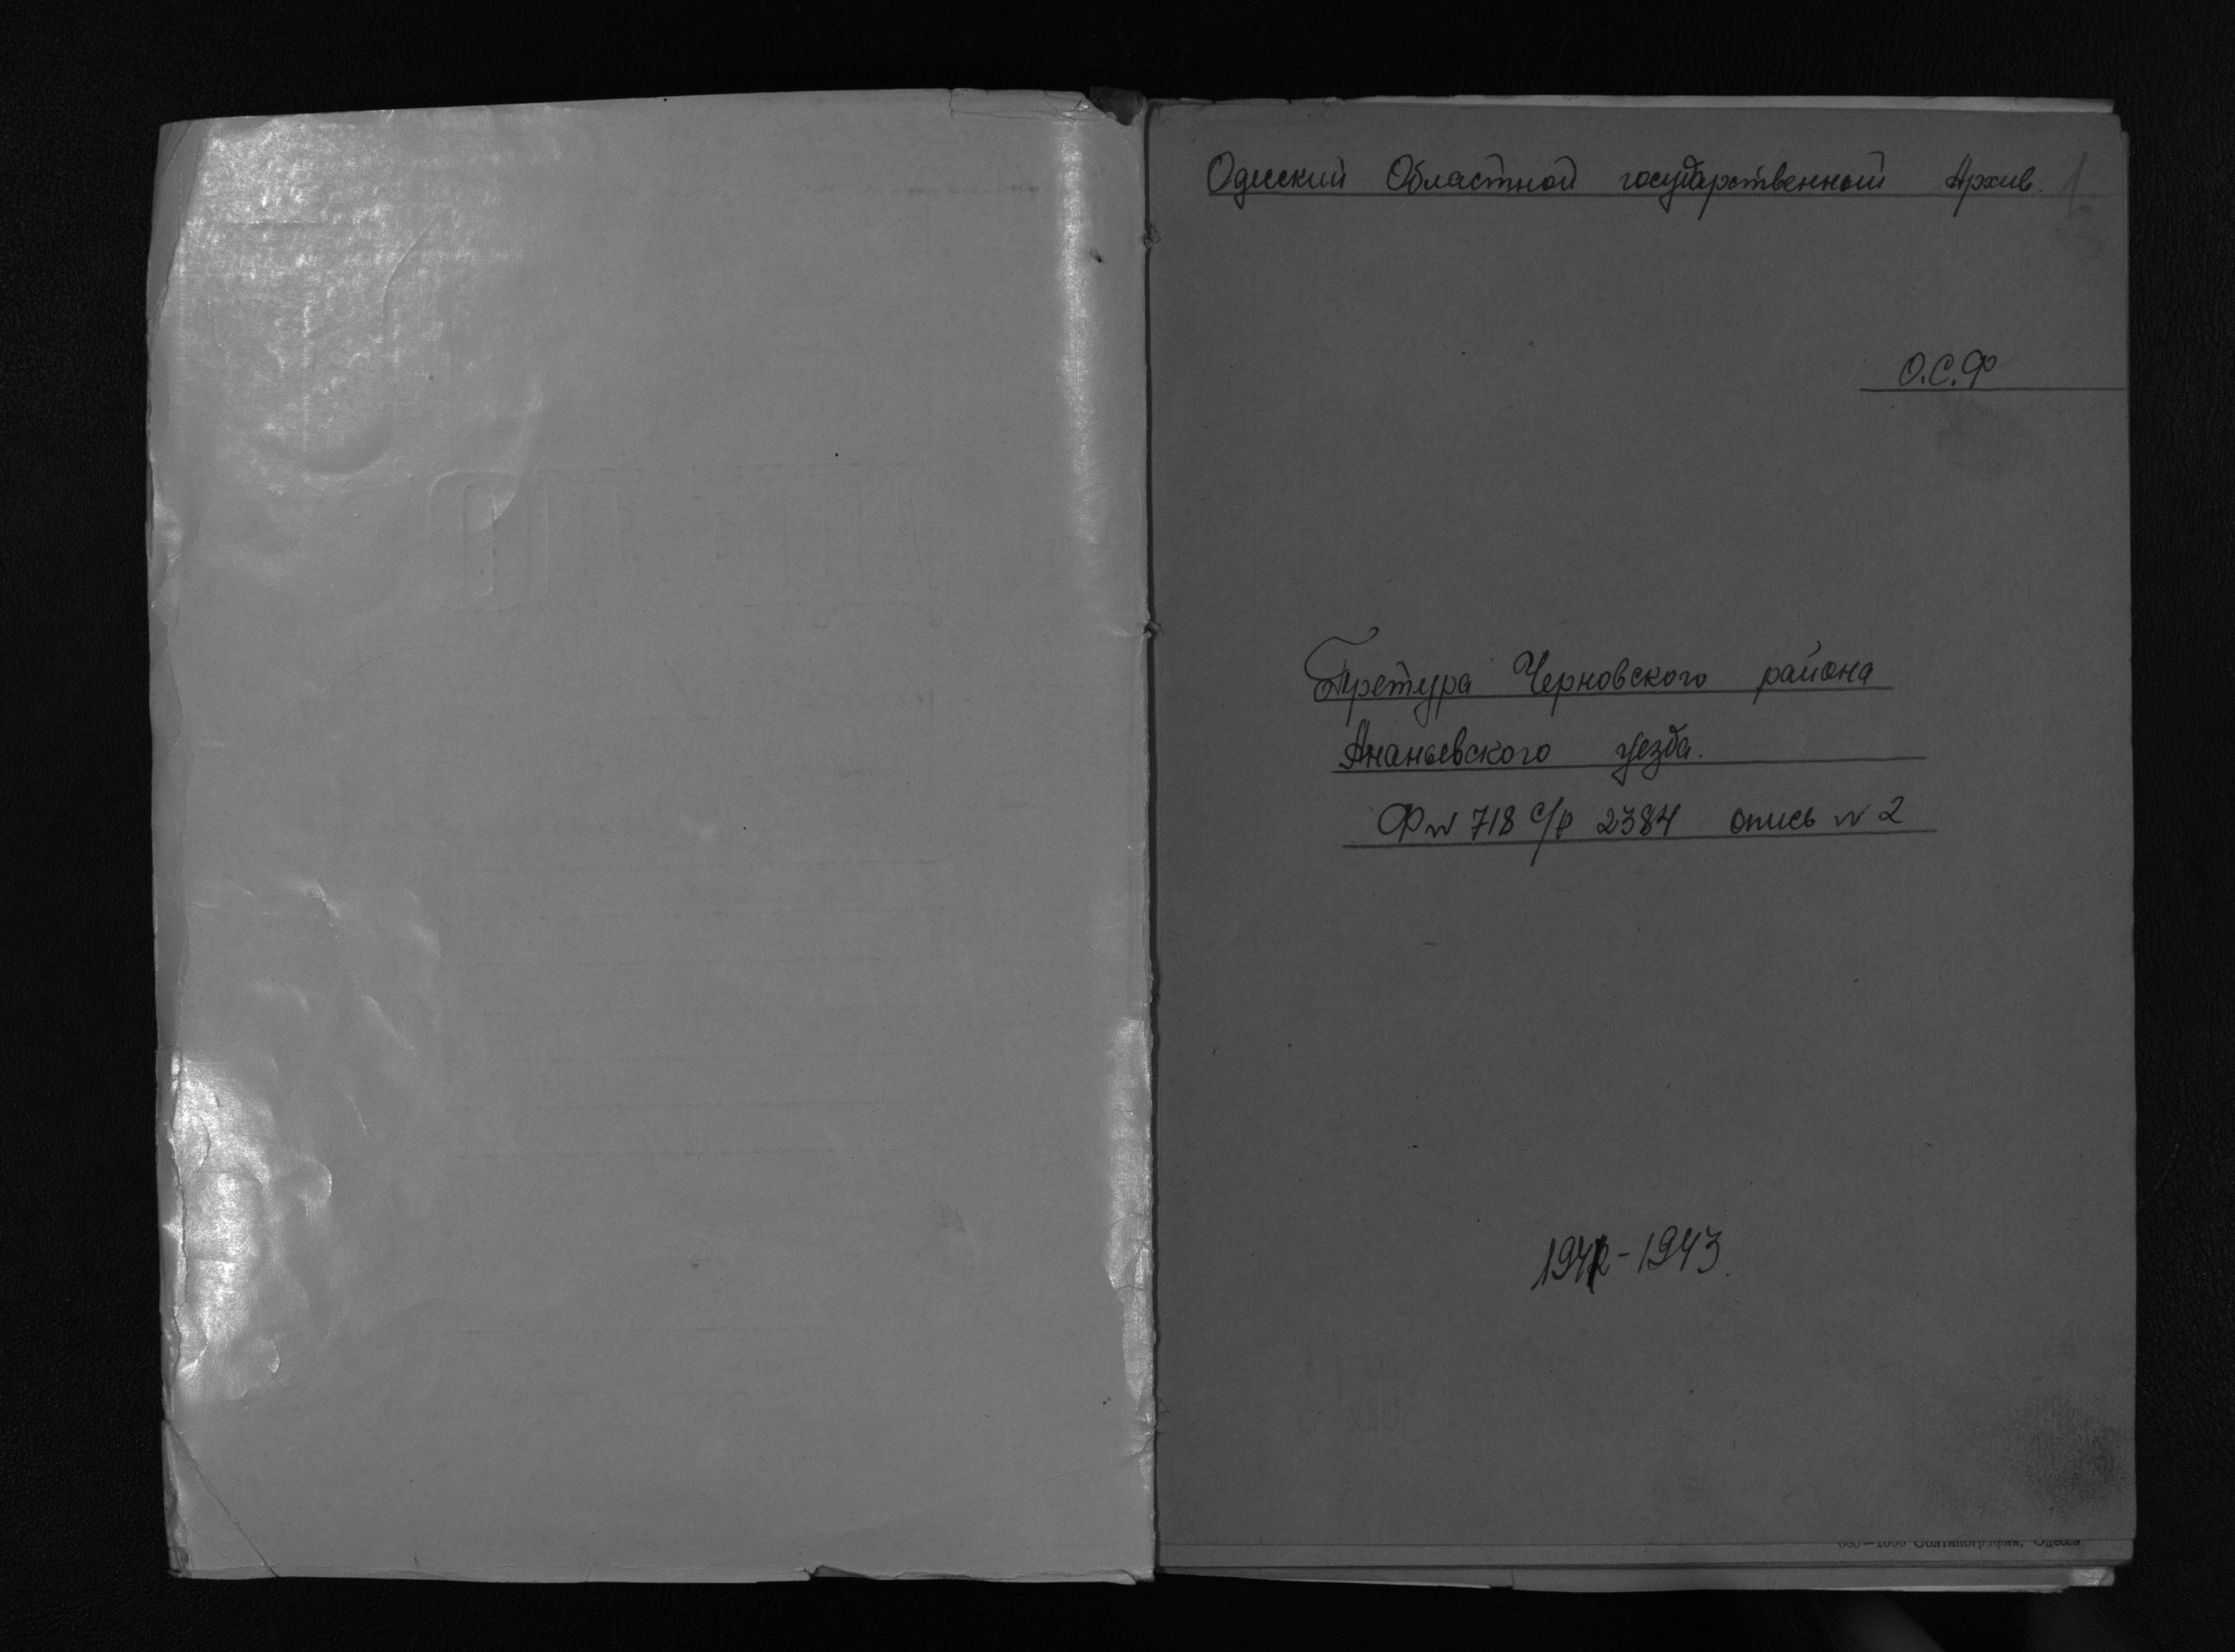 Одесский Областной государственный Архив.
1
О.С.Ф
Претура Черновского района
Ананьевского уезда.
Ф№ 718 с/р 2384 опись № 2
1942-1943
Облтипография, Одесса